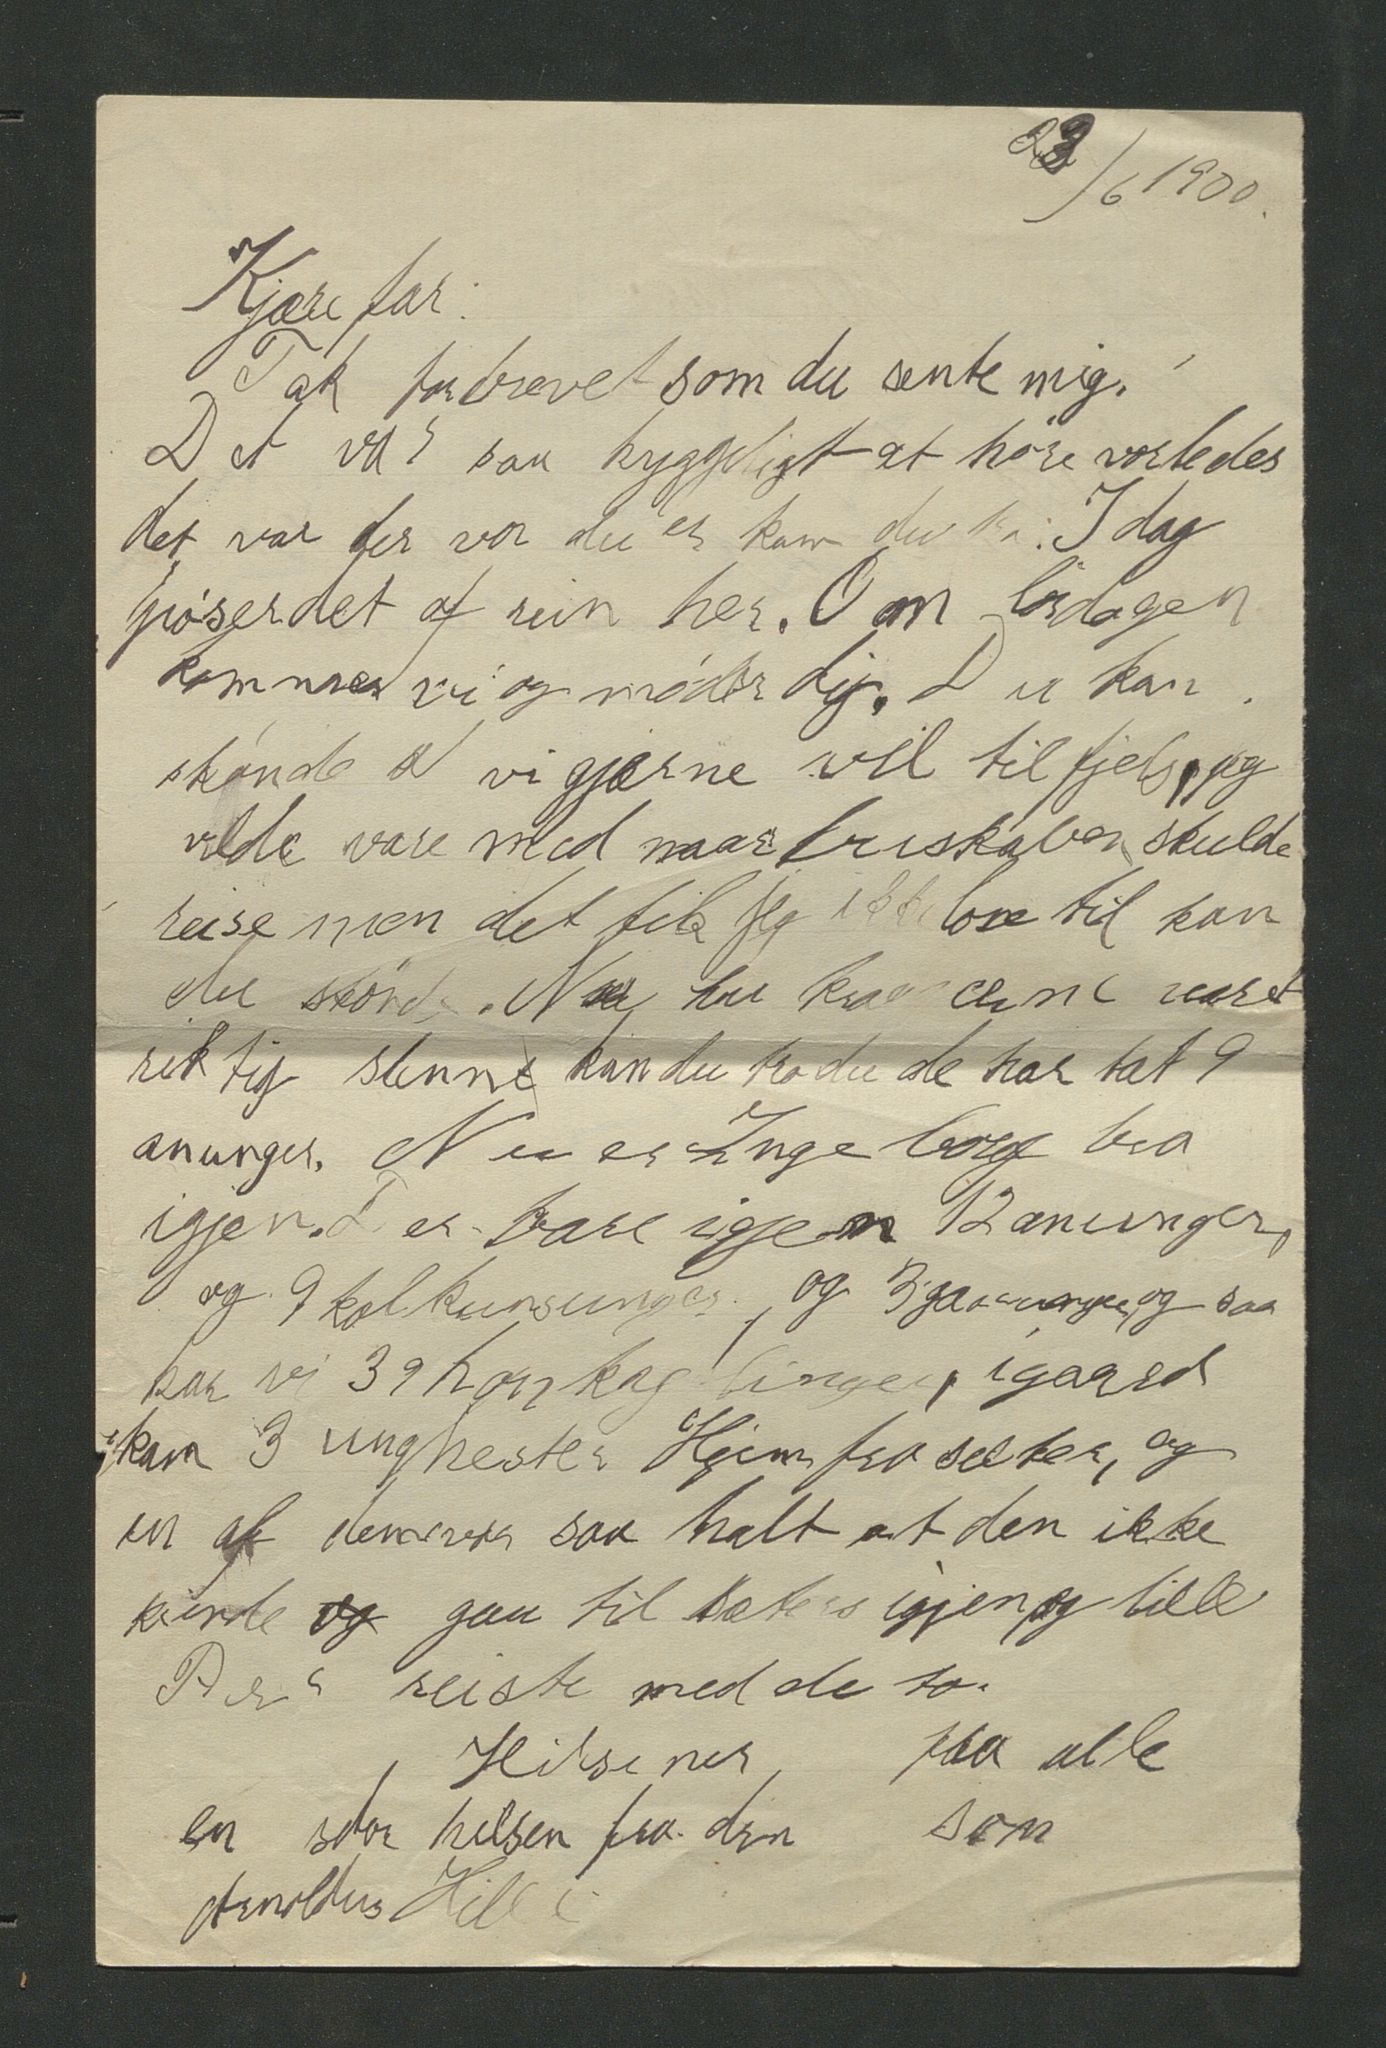 23/6 1900.
Kjære far:
Tak for brevet som du sente mig.
Det var saa hyggeligt at høre vorledes
det var der vor du er kan du tro. I dag
høserdet af rein her. Om lørdagen
kommer vi og møder dig. Du kan
skønde at vi gjærne vil til fjels, jeg
vilde være med naar bruskaben skulde
reise men det fik jeg ikke lov til kan
du skønde. Naa har kraaerne været
riktig slemme kan du tro du de har tat 9
anunger. Nu er Ingeborg bra
igjen. D er bare igjen 12 anunger,
og 9 kalkunsunger, og 3 gaasunger, og saa
har vi 39 kyllinger, igaard
kam 3 unghester Hjem fra sæter, og
en af dem var saa halt at den ikke
kunde gaa til sæters igjen, og lille
Per reiste med de to.
Hilsener fraa alle
en stor hilsen fra din søn
Arnoldus Hille